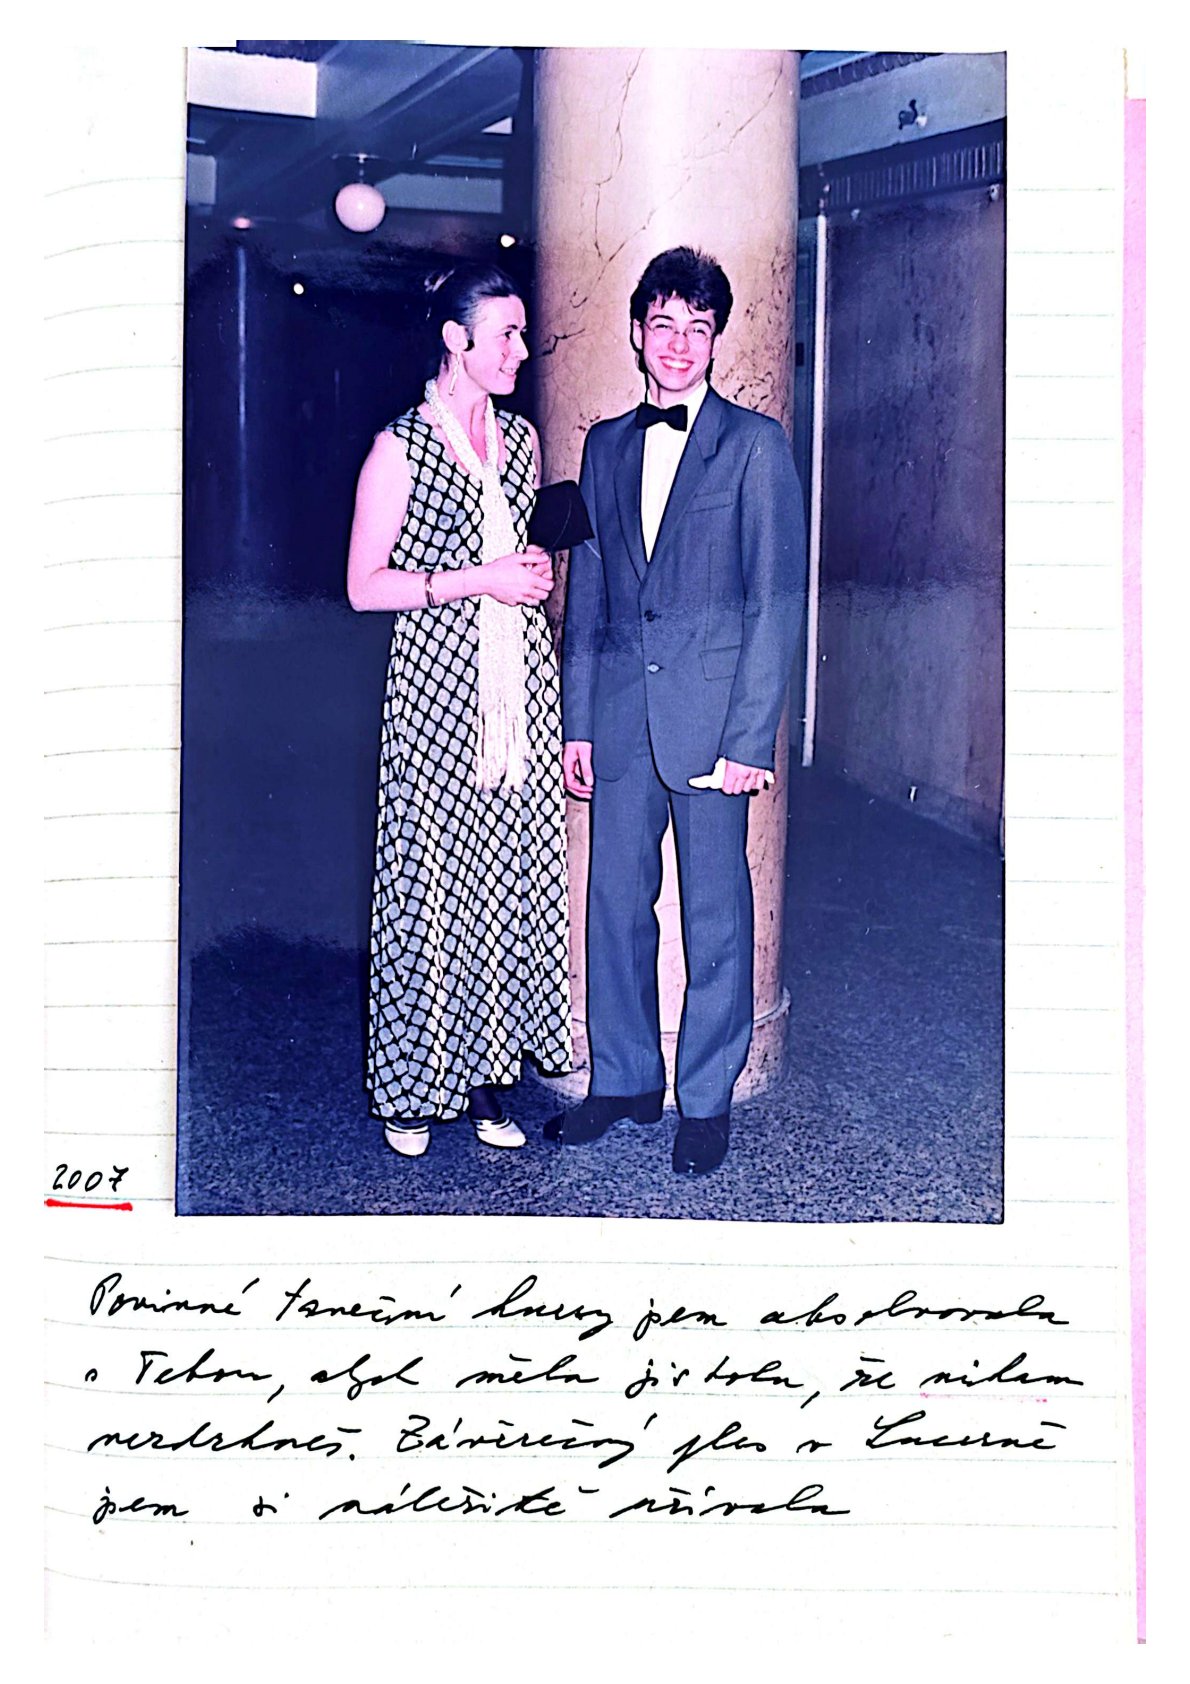 2007
Povinné taneční kursy jem absolvovala
s Tebou, abych měla jistotu, že nikam
nezdrhneš. Závěrečný ples v Lucerně
jsem si náležitě užívala